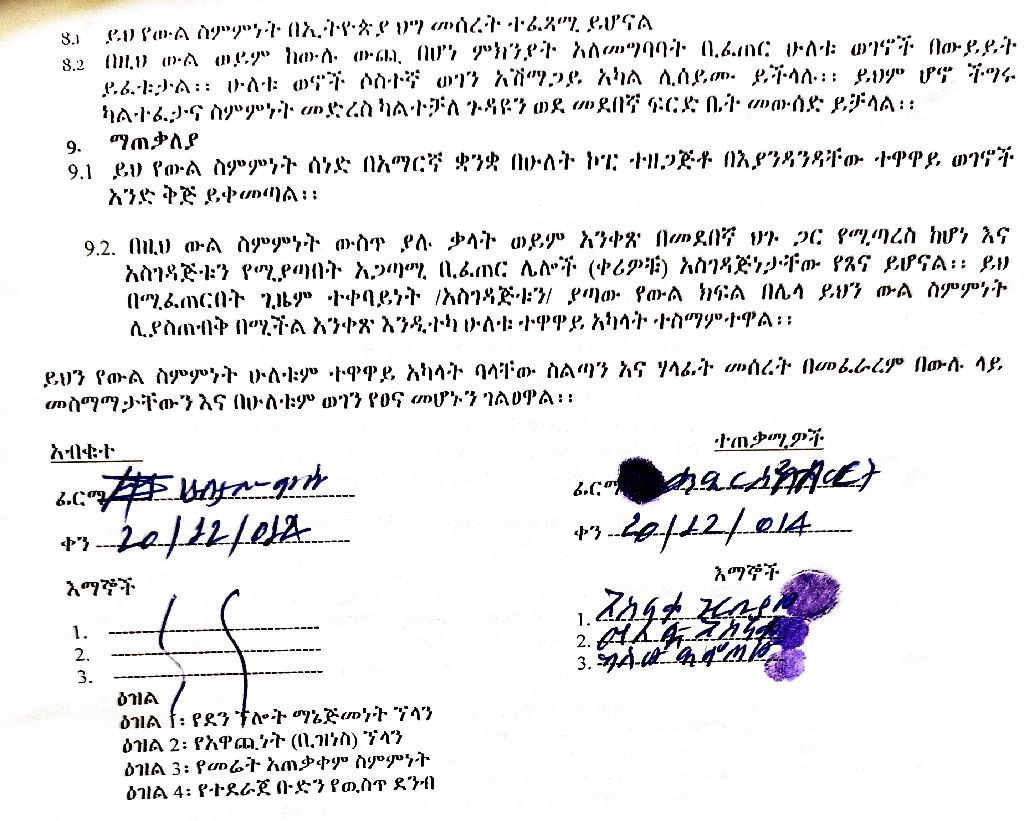 8.1 ይህ የውል ስምምነት በኢትዮጵያ ህግ መሰረት ተፈጻሚ ይሆናል
8.2 በዚህ ውል ወይም ከውሉ ውጪ በሆነ ምክንያት አለመግባባት ቢፈጠር ሁለቱ ወገኖች በውይይት
ይፈቱታል፡፡ ሁለቱ ወኖች ሶስተኛ ወገን አሸማጋይ አካል ሊሰይሙ ይችላሉ፡፡ ይህም ሆኖ ችግሩ
ካልተፈታና ስምምነት መድረስ ካልተቻለ ጉዳዩን ወደ መደበኛ ፍርድ ቤት መውሰድ ይቻላል፡፡
9. ማጠቃለያ
9.1 ይህ የውል ስምምነት ሰነድ በአማርኛ ቋንቋ በሁለት ኮፒ ተዘጋጅቶ በእያንዳንዳቸው ተዋዋይ ወገኖች
አንድ ቅጅ ይቀመጣል፡፡
9.2. በዚህ ውል ስምምነት ውስጥ ያሉ ቃላት ወይም አንቀጽ በመደበኛ ህጉ ጋር የሚጣረስ ከሆነ እና
አስገዳጅቱን የሚያጣበት አጋጣሚ ቢፈጠር ሌሎች (ቀሪዎቹ) አስገዳጅነታቸው የጸና ይሆናል፡፡ ይህ
በሚፈጠርበት ጊዜም ተቀባይነት /አስገዳጅቱን/ ያጣው የውል ክፍል በሌላ ይህን ውል ስምምነት
ሊያስጠብቅ በሚችል አንቀጽ እንዲተካ ሁለቱ ተዋዋይ አካላት ተስማምተዋል፡፡
ይህን የውል ስምምነት ሁለቱም ተዋዋይ አካላት ባላቸው ስልጣን እና ሃላፊት መሰረት በመፈራረም በውሉ ላይ
መስማማታቸውን እና በሁለቱም ወገን የፀና መሆኑን ገልፀዋል፡፡
አብቁተ
ተጠቃሚዎች
ፊርማ
ፊርማ
ቀን 20/12/014
ቀን 20/12/014
እማኞች
እማኞች
1.
2.
3.
1.
2.
3.
ዕዝል
ዕዝል 1፡ የደን ፕሎት ማኔጅመነት ፕላን
ዕዝል 2፡ የአዋጪነት (ቢዝነስ) ፕላን
ዕዝል 3፡ የመሬት አጠቃቀም ስምምነት
ዕዝል 4፡ የተደራጀ ቡድን የዉስጥ ደንብ